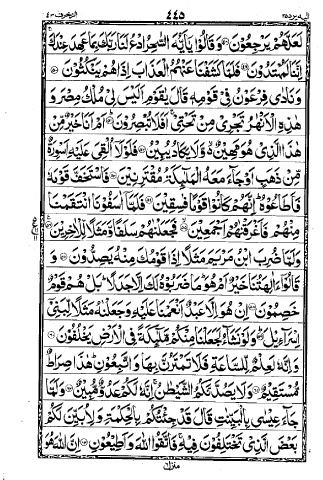 اليه يرد ٢٥ ٤٤٥ الزخرف ٤٣
لَعَلَّهُمْ يَرْجِعُوْنَ ۝ وَقَالُوْا يٰٓاَيُّهَ السّٰحِرُ ادْعُ لَنَا رَبَّكَ بِمَا عَهِدَ عِنْدَكَ
اِنَّنَا لَمُهْتَدُوْنَ ۝ فَلَمَّا كَشَفْنَا عَنْهُمُ الْعَذَابَ اِذَا هُمْ يَنْكُثُوْنَ ۝
وَنَادٰى فِرْعَوْنُ فِيْ قَوْمِهٖ قَالَ يٰقَوْمِ اَلَيْسَ لِيْ مُلْكُ مِصْرَ وَ
هٰذِهِ الْاَنْهٰرُ تَجْرِيْ مِنْ تَحْتِيْ ۚ اَفَلَا تُبْصِرُوْنَ ۝ اَمْ اَنَا خَيْرٌ مِّنْ
هٰذَا الَّذِيْ هُوَ مَهِيْنٌ ۙ وَّلَا يَكَادُ يُبِيْنُ ۝ فَلَوْلَآ اُلْقِيَ عَلَيْهِ اَسْوِرَةٌ
مِّنْ ذَهَبٍ اَوْ جَآءَ مَعَهُ الْمَلٰٓئِكَةُ مُقْتَرِنِيْنَ ۝ فَاسْتَخَفَّ قَوْمَهٗ
فَاَطَاعُوْهُ ۭ اِنَّهُمْ كَانُوْا قَوْمًا فٰسِقِيْنَ ۝ فَلَمَّآ اٰسَفُوْنَا انْتَقَمْنَا
مِنْهُمْ فَاَغْرَقْنٰهُمْ اَجْمَعِيْنَ ۝ فَجَعَلْنٰهُمْ سَلَفًا وَّمَثَلًا لِّلْاٰخِرِيْنَ ۝
وَلَمَّا ضُرِبَ ابْنُ مَرْيَمَ مَثَلًا اِذَا قَوْمُكَ مِنْهُ يَصِدُّوْنَ ۝ وَ
قَالُوْٓا ءَاٰلِهَتُنَا خَيْرٌ اَمْ هُوَ ۭ مَا ضَرَبُوْهُ لَكَ اِلَّا جَدَلًا ۭ بَلْ هُمْ قَوْمٌ
خَصِمُوْنَ ۝ اِنْ هُوَ اِلَّا عَبْدٌ اَنْعَمْنَا عَلَيْهِ وَجَعَلْنٰهُ مَثَلًا لِّبَنِيْٓ
اِسْرَآءِيْلَ ۝ وَلَوْ نَشَآءُ لَجَعَلْنَا مِنْكُمْ مَّلٰٓئِكَةً فِي الْاَرْضِ يَخْلُفُوْنَ ۝
وَاِنَّهٗ لَعِلْمٌ لِّلسَّاعَةِ فَلَا تَمْتَرُنَّ بِهَا وَاتَّبِعُوْنِ ۭ هٰذَا صِرَاطٌ
مُّسْتَقِيْمٌ ۝ وَلَا يَصُدَّنَّكُمُ الشَّيْطٰنُ ۚ اِنَّهٗ لَكُمْ عَدُوٌّ مُّبِيْنٌ ۝ وَلَمَّا
جَآءَ عِيْسٰى بِالْبَيِّنٰتِ قَالَ قَدْ جِئْتُكُمْ بِالْحِكْمَةِ وَلِاُبَيِّنَ لَكُمْ
بَعْضَ الَّذِيْ تَخْتَلِفُوْنَ فِيْهِ ۚ فَاتَّقُوا اللّٰهَ وَاَطِيْعُوْنِ ۝ اِنَّ اللّٰهَ هُوَ